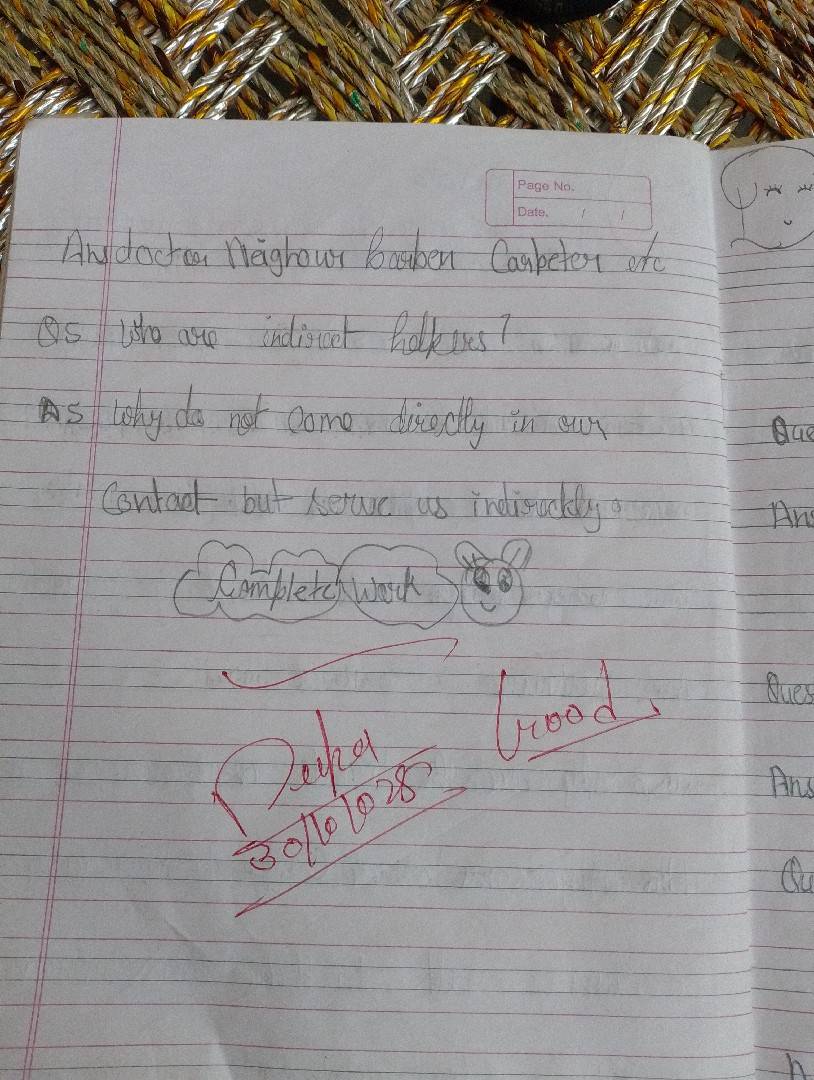 Page No.
Date. / /
Ans doctor Neighour barber Carbeter etc
Q5 Who are indirect holkers?
A5 Why do not come directly in our
Contact but serve us indirockly.
Complete Work
Good
Deepa
Que
Ans
Ques
Ans
Qu